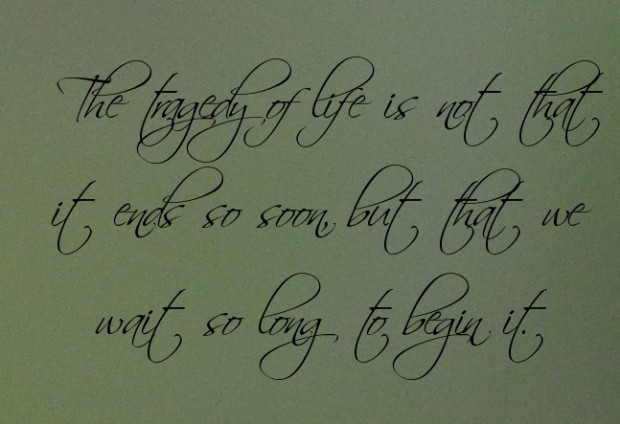 The tragedy of life is not that
it ends so soon, but that we
wait so long to begin it.